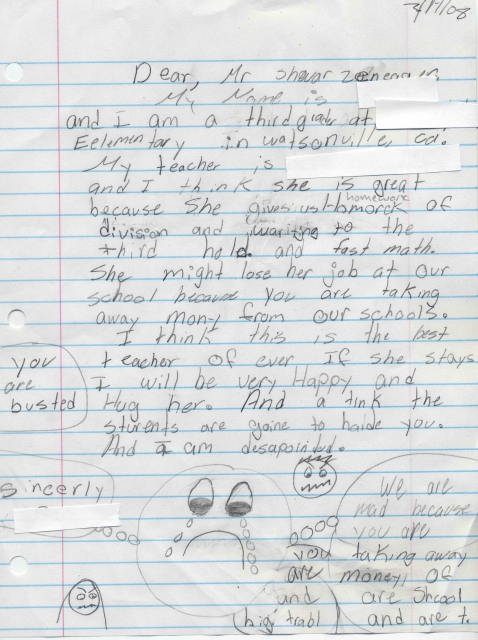 Dear, Mr Shwarzenenger,
My Name is
and I am a third grader at
Eelementary in watsonville, ca.
My teacher is
and I think she is great
because She gives us homework of
division and wariting to the
third hold and fast math.
She might lose her job at our
school because you are taking
away mony from our schools.
I think this is the best
teacher of ever If she stays
I will be very Happy and
Hug her. And a tink the
sturents are goine to haide you.
And I am desapointed.
you
are
busted
Sincerly
We are
mad because
you are
taking away
money, of
are Shcool
and are t.
you
are
and
big trabl